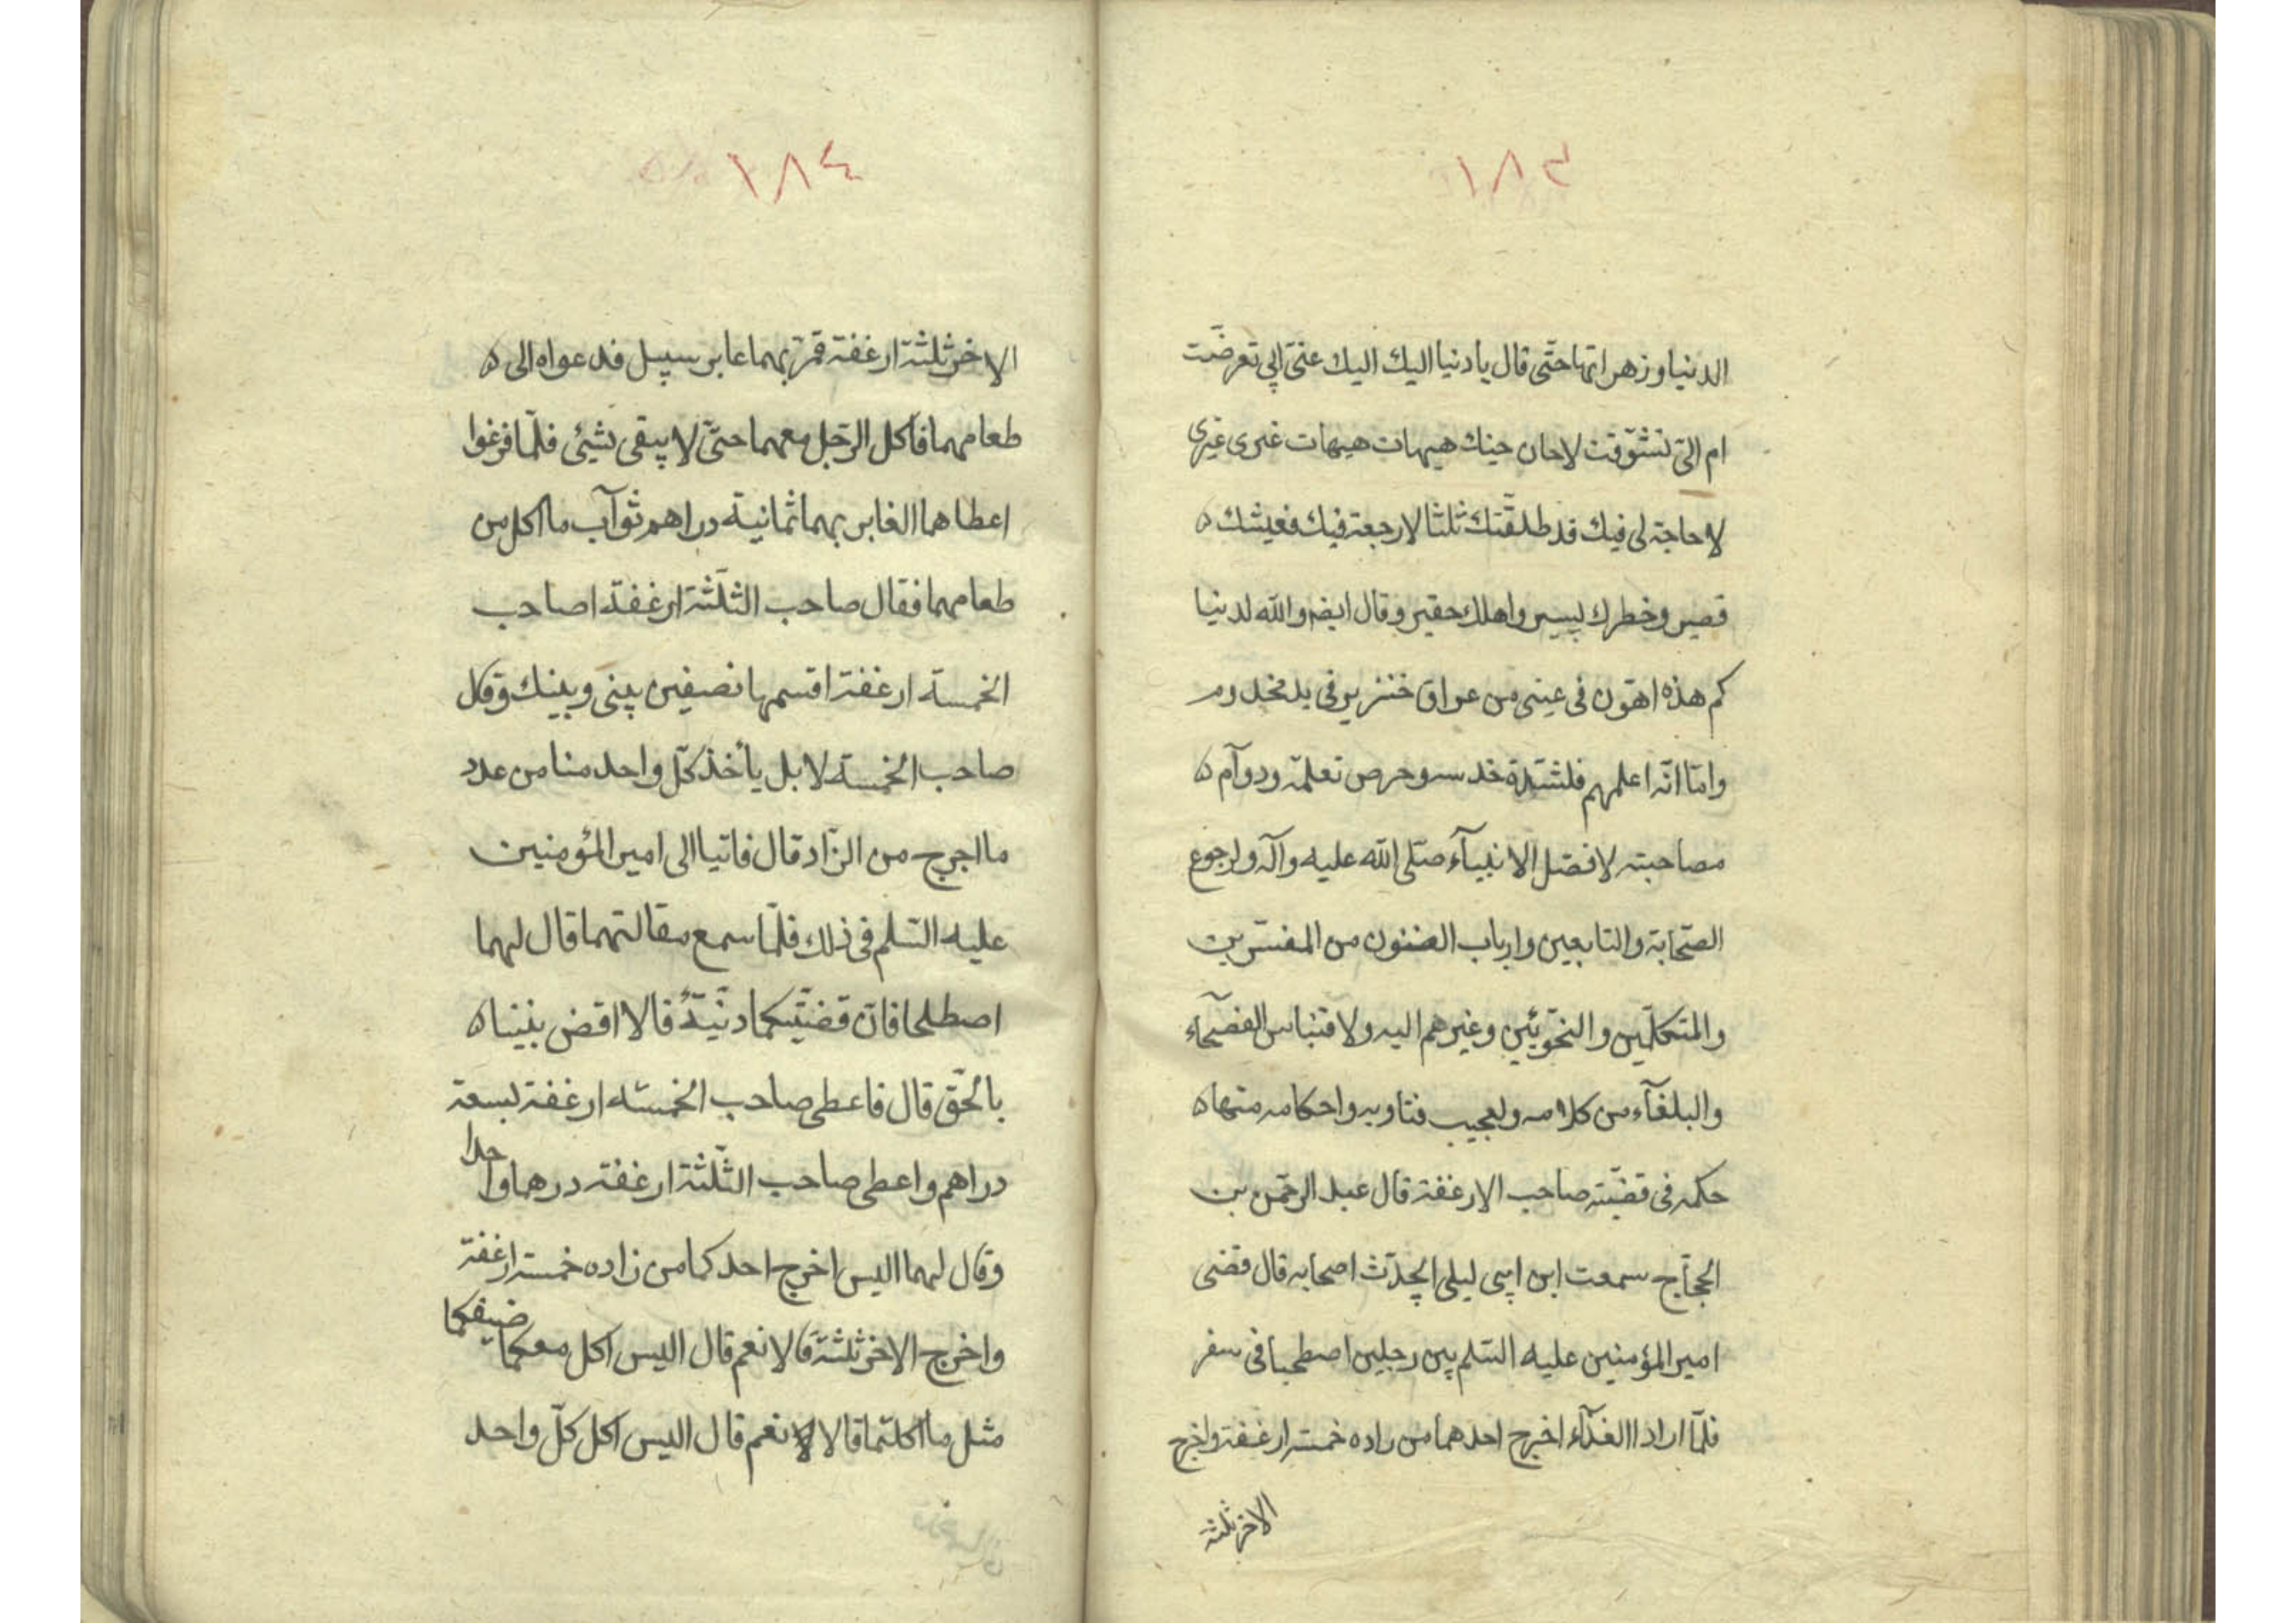 ١٨٣
الدنيا وزهراتها حتّى قال يا دنيا اليك اليك عنّى ابي تعرضّت
ام الىّ تشوّقت لاحان حينك هيهات هيهات غرى غيرى
لا حاجة لى فيك قد طلقّتك ثلثا لا رجعة فيك فعيشك ه
قصير وخطرك يسير واهلك حقير وقال ايضم والله لدنيا
كم هذه اهون فى عينى من عراق خنزير فى يد مجذوم
وامّا انّه اعلمهم فلشدّة حدسه وحرص تعلمّه ودوآم ه
مصاحبته لافضل الانبيآء صلّى الله عليه وآله ولرجوع
الصّحابة والتابعين وارباب الفنون من المفسّرين
والمتكلّمين والنحّويّين وغيرهم اليه ولاقتباس الفصحآء
والبلغآء من كلامه ولعجيب فتاويه واحكامه منها ه
حكمه فى قضيّته صاحب الارغفة قال عبد الرحمّن بن
الحجّاج سمعت ابن ابى ليلى يحدّث اصحابه قال قضى
امير المؤمنين عليه السّلم بين رجلين اصطحبا فى سفر
فلمّا ارادا الغدآء اخرج احدهما من زاده خمسة ارغفة واخرج
الاخر ثلثة
١٨٤
الاخر ثلثة ارغفة فمرّ بهما عابر سبيل فدعواه الى ه
طعامهما فاكل الرّجل معهما حتّى لا يبقى شيئى فلمّا فرغوا
اعطاهما الغابر بهما ثمانية دراهم ثوآب ما اكل من
طعامهما فقال صاحب الثلثة ارغفة اصاحب
الخمسة ارغفة اقسمها نصيفين بينى وبينك وقال
صاحب الخمسة لا بل يأخذ كلّ واحد منا من عدد
ما اخرج من الزّاد قال فاتيا الى امير المؤمنين
عليه السّلم فى ذلك فلمّا سمع مقالتهما قال لهما
اصطلحا فانّ قضيّتكما دنيّة فالا اقض بيننا ه
بالحّق قال فاعطى صاحب الخمسة ارغفة لسبعة
دراهم واعطى صاحب الثلثة ارغفة درهما واحدا
وقال لهما اليس اخرج احدكما من زاده خمسة ارغفة
واخرج الاخر ثلثة قالا نعم قال اليس اكل معكما ضيفكما
مثل ما اكلتما قالا نعم قال اليس اكل كلّ واحد